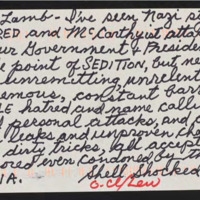 Lamb - I've seen Nazi s
RED and McCarthyist attac
ur Government & Preside
e point of SEDITION, but ne
unremitting unrelent
emous, constant bar
LE hatred and name calli
d personal attacks, and
leaks and unproven che
dirty tricks, all accepte
ored even condoned by th
IA. Shell Shocked